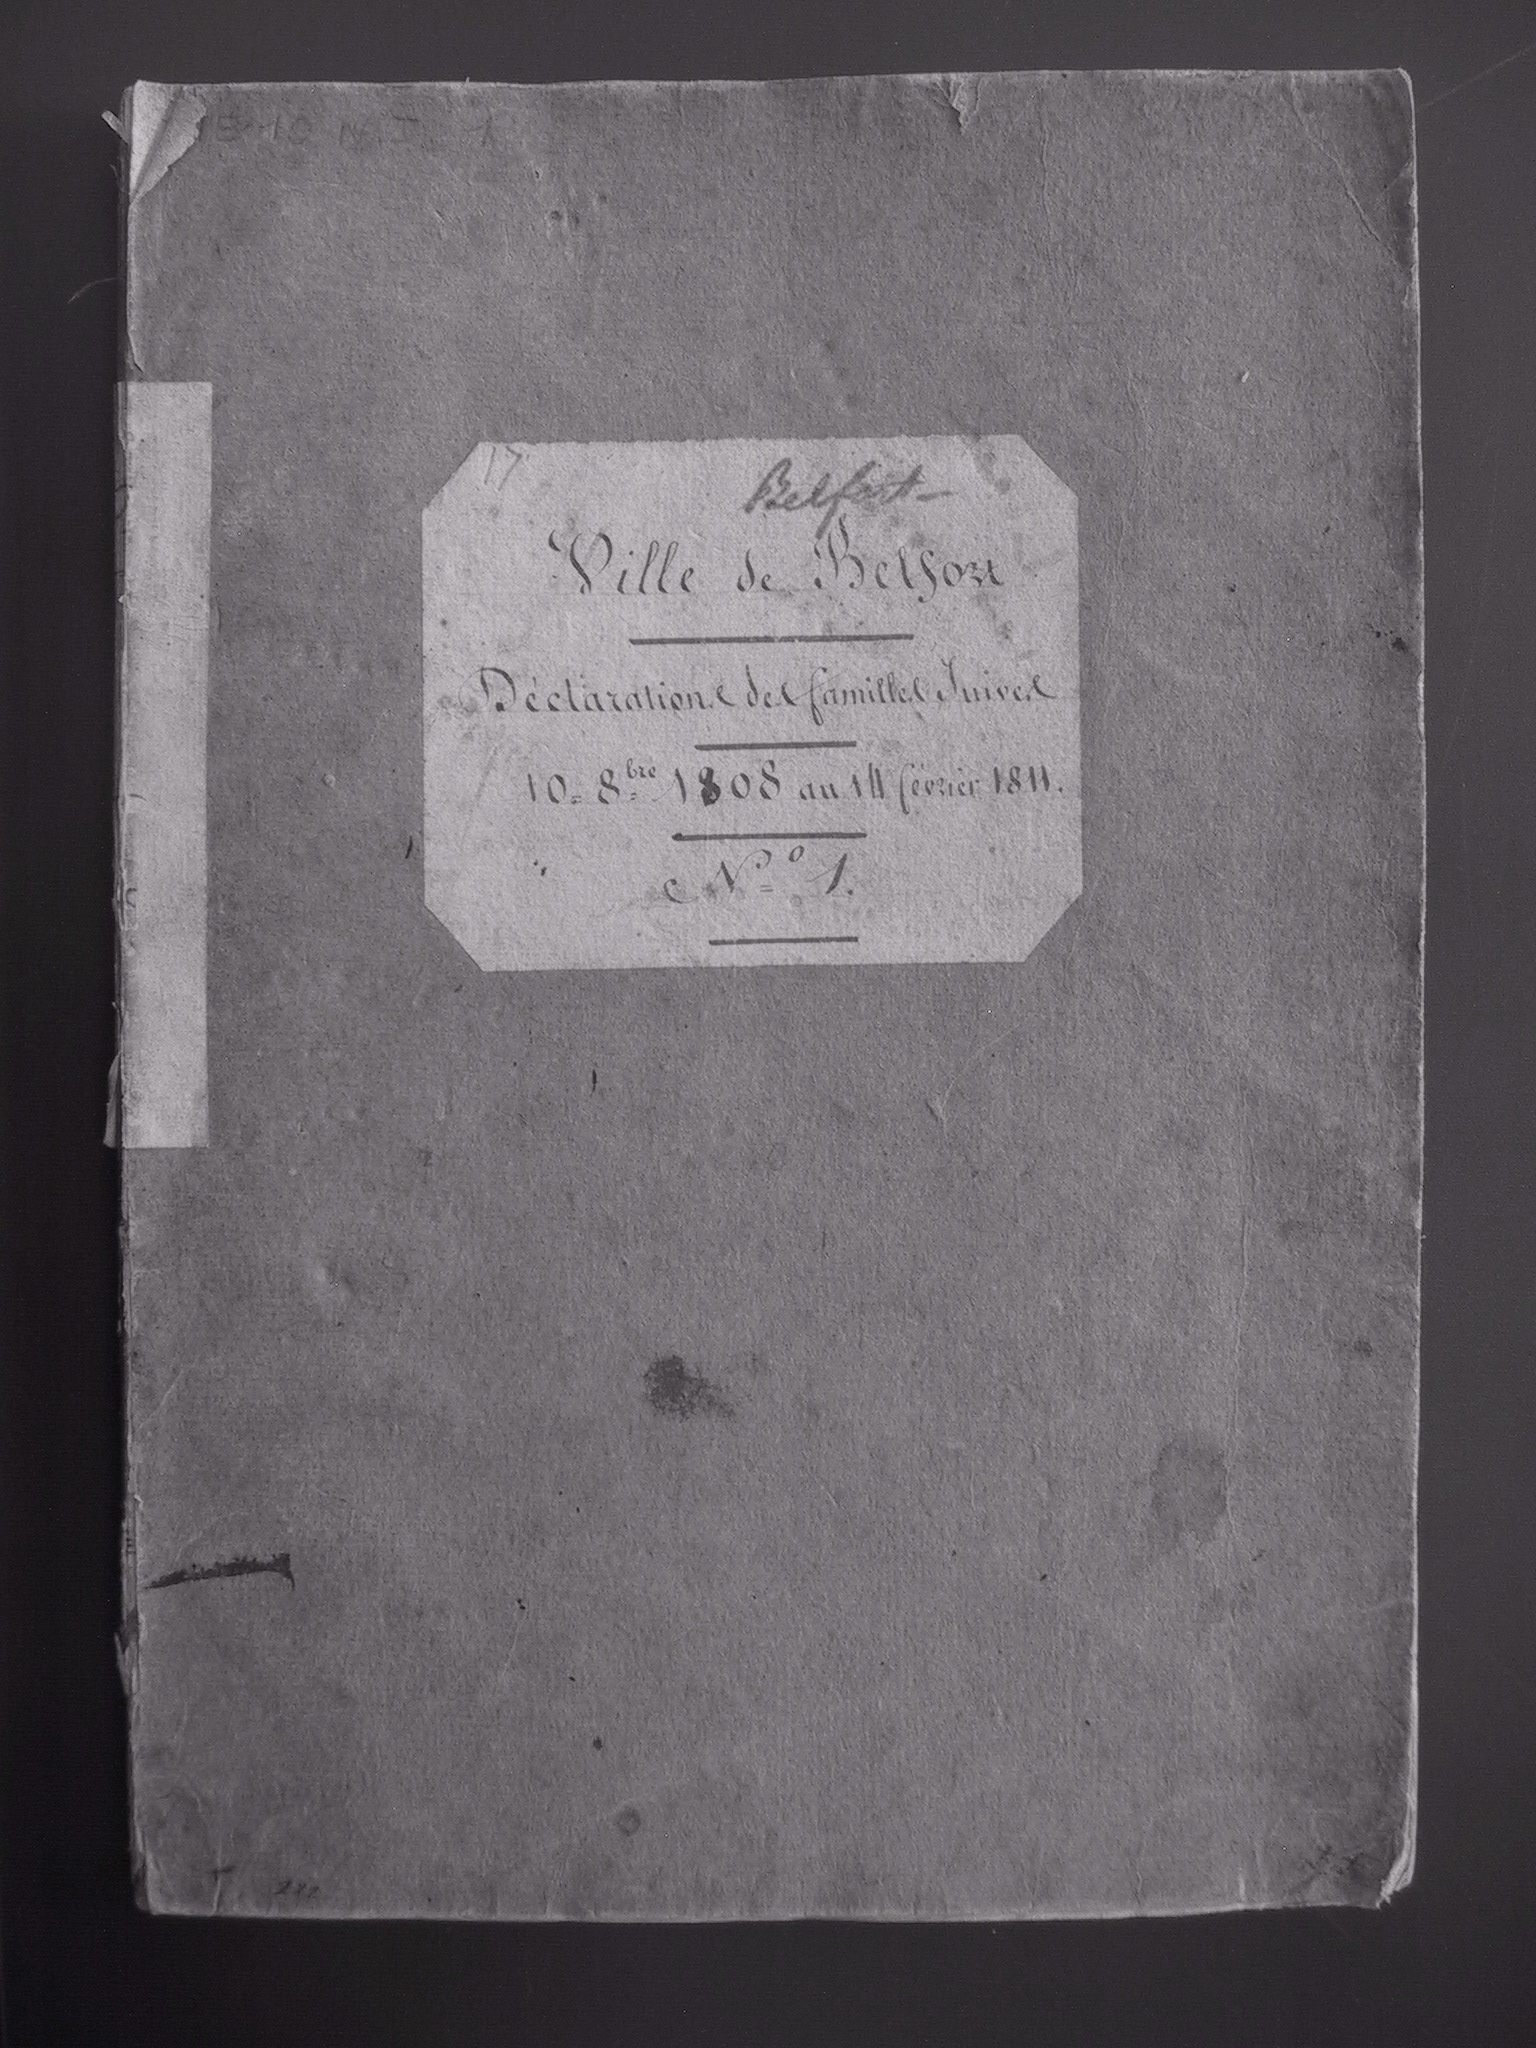 17
Belfort
Ville de Belfort
Déclarations des familles Juives
10 = 8bre 1808 au 14 février 1811.
No 1.